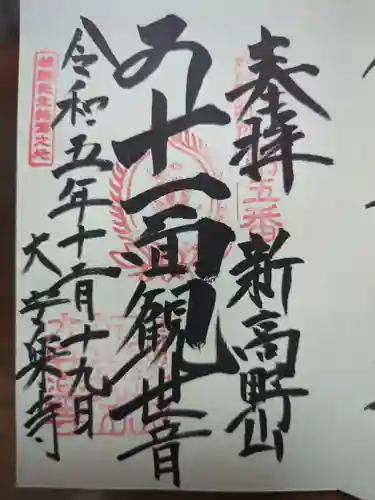 奉拝
新高野山
十一面観世音
令和五年十二月十九日
大安楽寺
五番